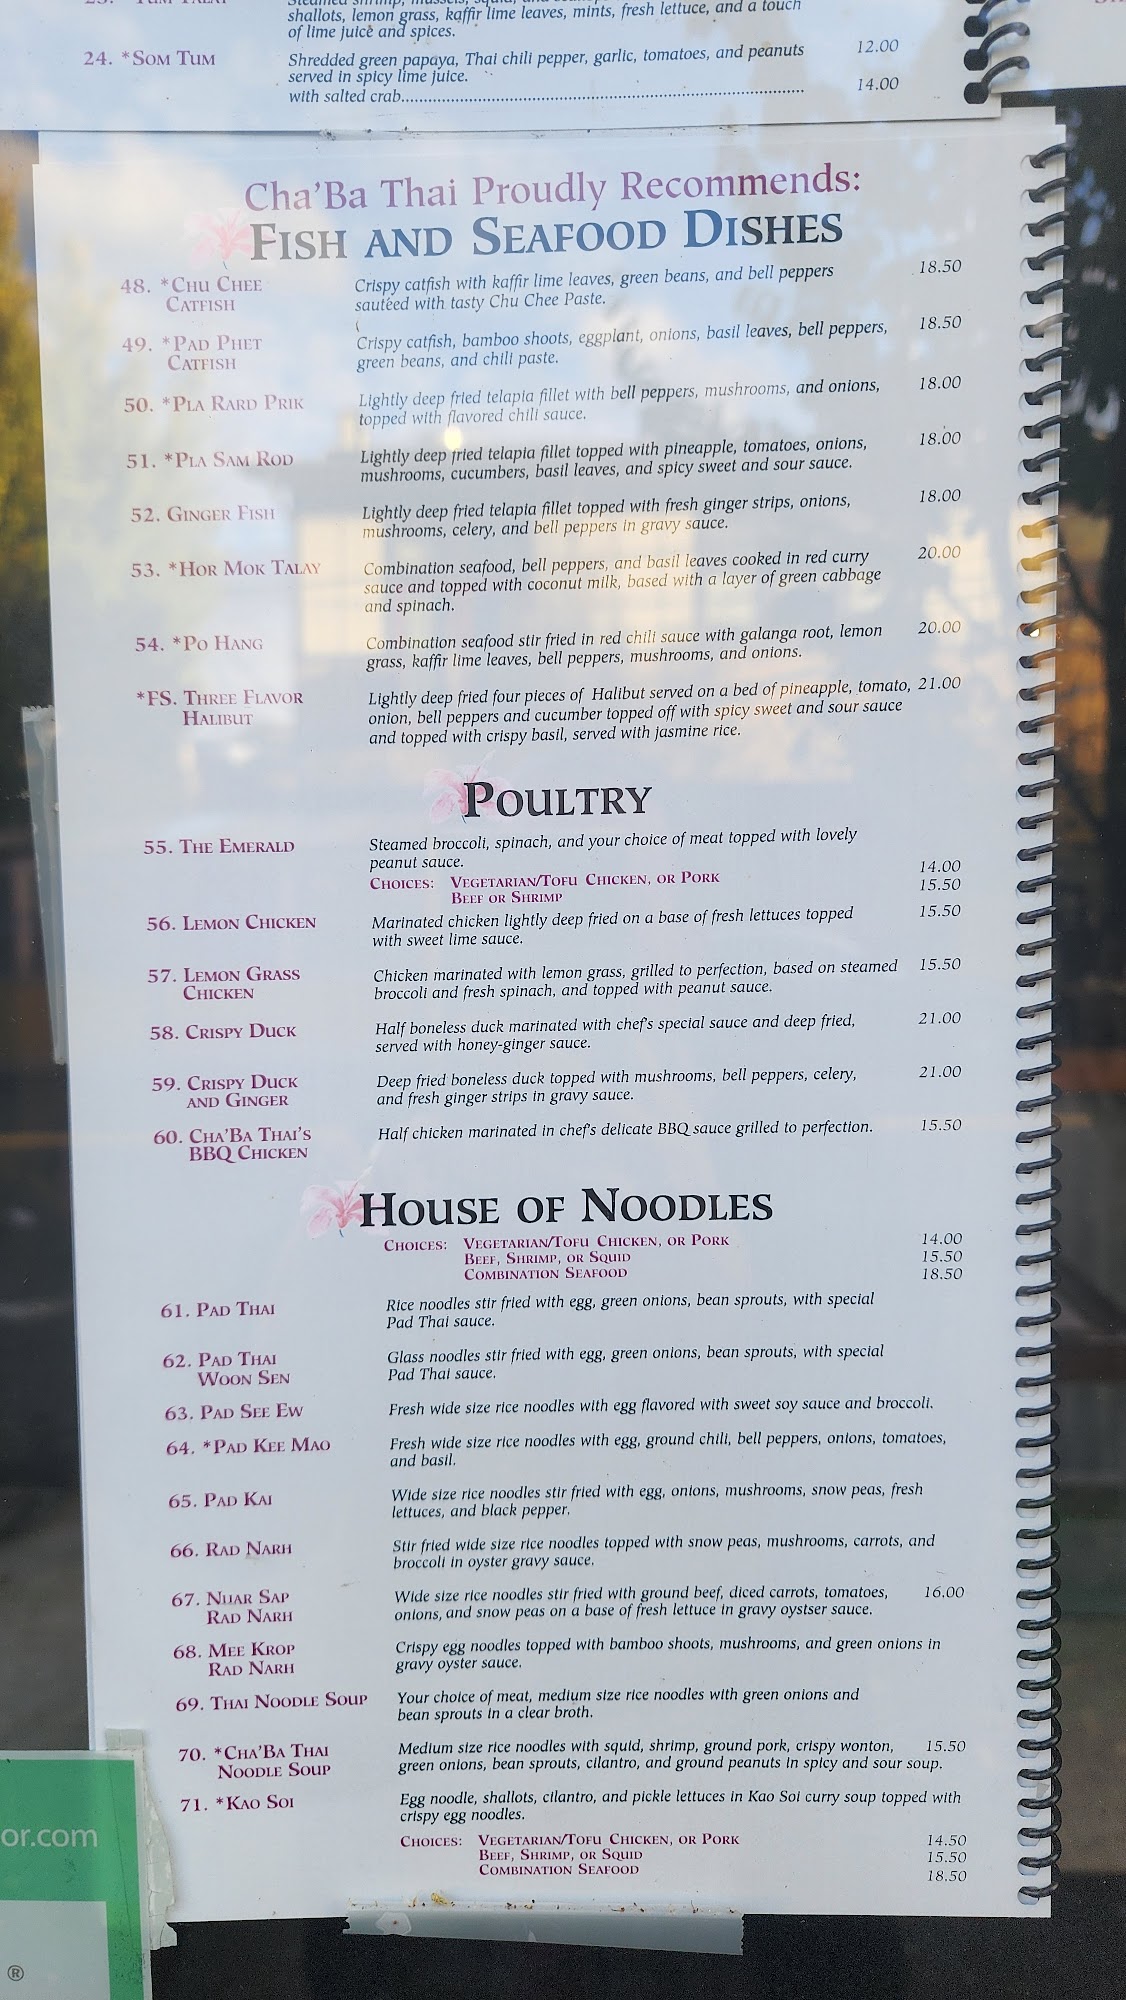 shallots, lemon grass, kaffir lime leaves, mints, fresh lettuce, and a touch
of lime juice and spices.
24. *Som Tum Shredded green papaya, Thai chili pepper, garlic, tomatoes, and peanuts 12.00
served in spicy lime juice.
with salted crab 14.00
Cha'Ba Thai Proudly Recommends:
Fish and Seafood Dishes
48. *Chu Chee Crispy catfish with kaffir lime leaves, green beans, and bell peppers 18.50
Catfish sautéed with tasty Chu Chee Paste.
49. *Pad Phet Crispy catfish, bamboo shoots, eggplant, onions, basil leaves, bell peppers, 18.50
Catfish green beans, and chili paste.
50. *Pla Rard Prik Lightly deep fried telapia fillet with bell peppers, mushrooms, and onions, 18.00
topped with flavored chili sauce.
51. *Pla Sam Rod Lightly deep fried telapia fillet topped with pineapple, tomatoes, onions, 18.00
mushrooms, cucumbers, basil leaves, and spicy sweet and sour sauce.
52. Ginger Fish Lightly deep fried telapia fillet topped with fresh ginger strips, onions, 18.00
mushrooms, celery, and bell peppers in gravy sauce.
53. *Hor Mok Talay Combination seafood, bell peppers, and basil leaves cooked in red curry 20.00
sauce and topped with coconut milk, based with a layer of green cabbage
and spinach.
54. *Po Hang Combination seafood stir fried in red chili sauce with galanga root, lemon 20.00
grass, kaffir lime leaves, bell peppers, mushrooms, and onions.
*FS. Three Flavor Lightly deep fried four pieces of Halibut served on a bed of pineapple, tomato, 21.00
Halibut onion, bell peppers and cucumber topped off with spicy sweet and sour sauce
and topped with crispy basil, served with jasmine rice.
Poultry
55. The Emerald Steamed broccoli, spinach, and your choice of meat topped with lovely
peanut sauce.
Choices: Vegetarian/Tofu Chicken, or Pork 14.00
Beef or Shrimp 15.50
56. Lemon Chicken Marinated chicken lightly deep fried on a base of fresh lettuces topped 15.50
with sweet lime sauce.
57. Lemon Grass Chicken marinated with lemon grass, grilled to perfection, based on steamed 15.50
Chicken broccoli and fresh spinach, and topped with peanut sauce.
58. Crispy Duck Half boneless duck marinated with chef's special sauce and deep fried, 21.00
served with honey-ginger sauce.
59. Crispy Duck Deep fried boneless duck topped with mushrooms, bell peppers, celery, 21.00
and Ginger and fresh ginger strips in gravy sauce.
60. Cha'Ba Thai's Half chicken marinated in chef's delicate BBQ sauce grilled to perfection. 15.50
BBQ Chicken
House of Noodles
Choices: Vegetarian/Tofu Chicken, or Pork 14.00
Beef, Shrimp, or Squid 15.50
Combination Seafood 18.50
61. Pad Thai Rice noodles stir fried with egg, green onions, bean sprouts, with special
Pad Thai sauce.
62. Pad Thai Glass noodles stir fried with egg, green onions, bean sprouts, with special
Woon Sen Pad Thai sauce.
63. Pad See Ew Fresh wide size rice noodles with egg flavored with sweet soy sauce and broccoli.
64. *Pad Kee Mao Fresh wide size rice noodles with egg, ground chili, bell peppers, onions, tomatoes,
and basil.
65. Pad Kai Wide size rice noodles stir fried with egg, onions, mushrooms, snow peas, fresh
lettuces, and black pepper.
66. Rad Narh Stir fried wide size rice noodles topped with snow peas, mushrooms, carrots, and
broccoli in oyster gravy sauce.
67. Nuar Sap Wide size rice noodles stir fried with ground beef, diced carrots, tomatoes, 16.00
Rad Narh onions, and snow peas on a base of fresh lettuce in gravy oystser sauce.
68. Mee Krop Crispy egg noodles topped with bamboo shoots, mushrooms, and green onions in
Rad Narh gravy oyster sauce.
69. Thai Noodle Soup Your choice of meat, medium size rice noodles with green onions and
bean sprouts in a clear broth.
70. *Cha'Ba Thai Medium size rice noodles with squid, shrimp, ground pork, crispy wonton, 15.50
Noodle Soup green onions, bean sprouts, cilantro, and ground peanuts in spicy and sour soup.
71. *Kao Soi Egg noodle, shallots, cilantro, and pickle lettuces in Kao Soi curry soup topped with
crispy egg noodles.
Choices: Vegetarian/Tofu Chicken, or Pork 14.50
Beef, Shrimp, or Squid 15.50
Combination Seafood 18.50
or.com
®